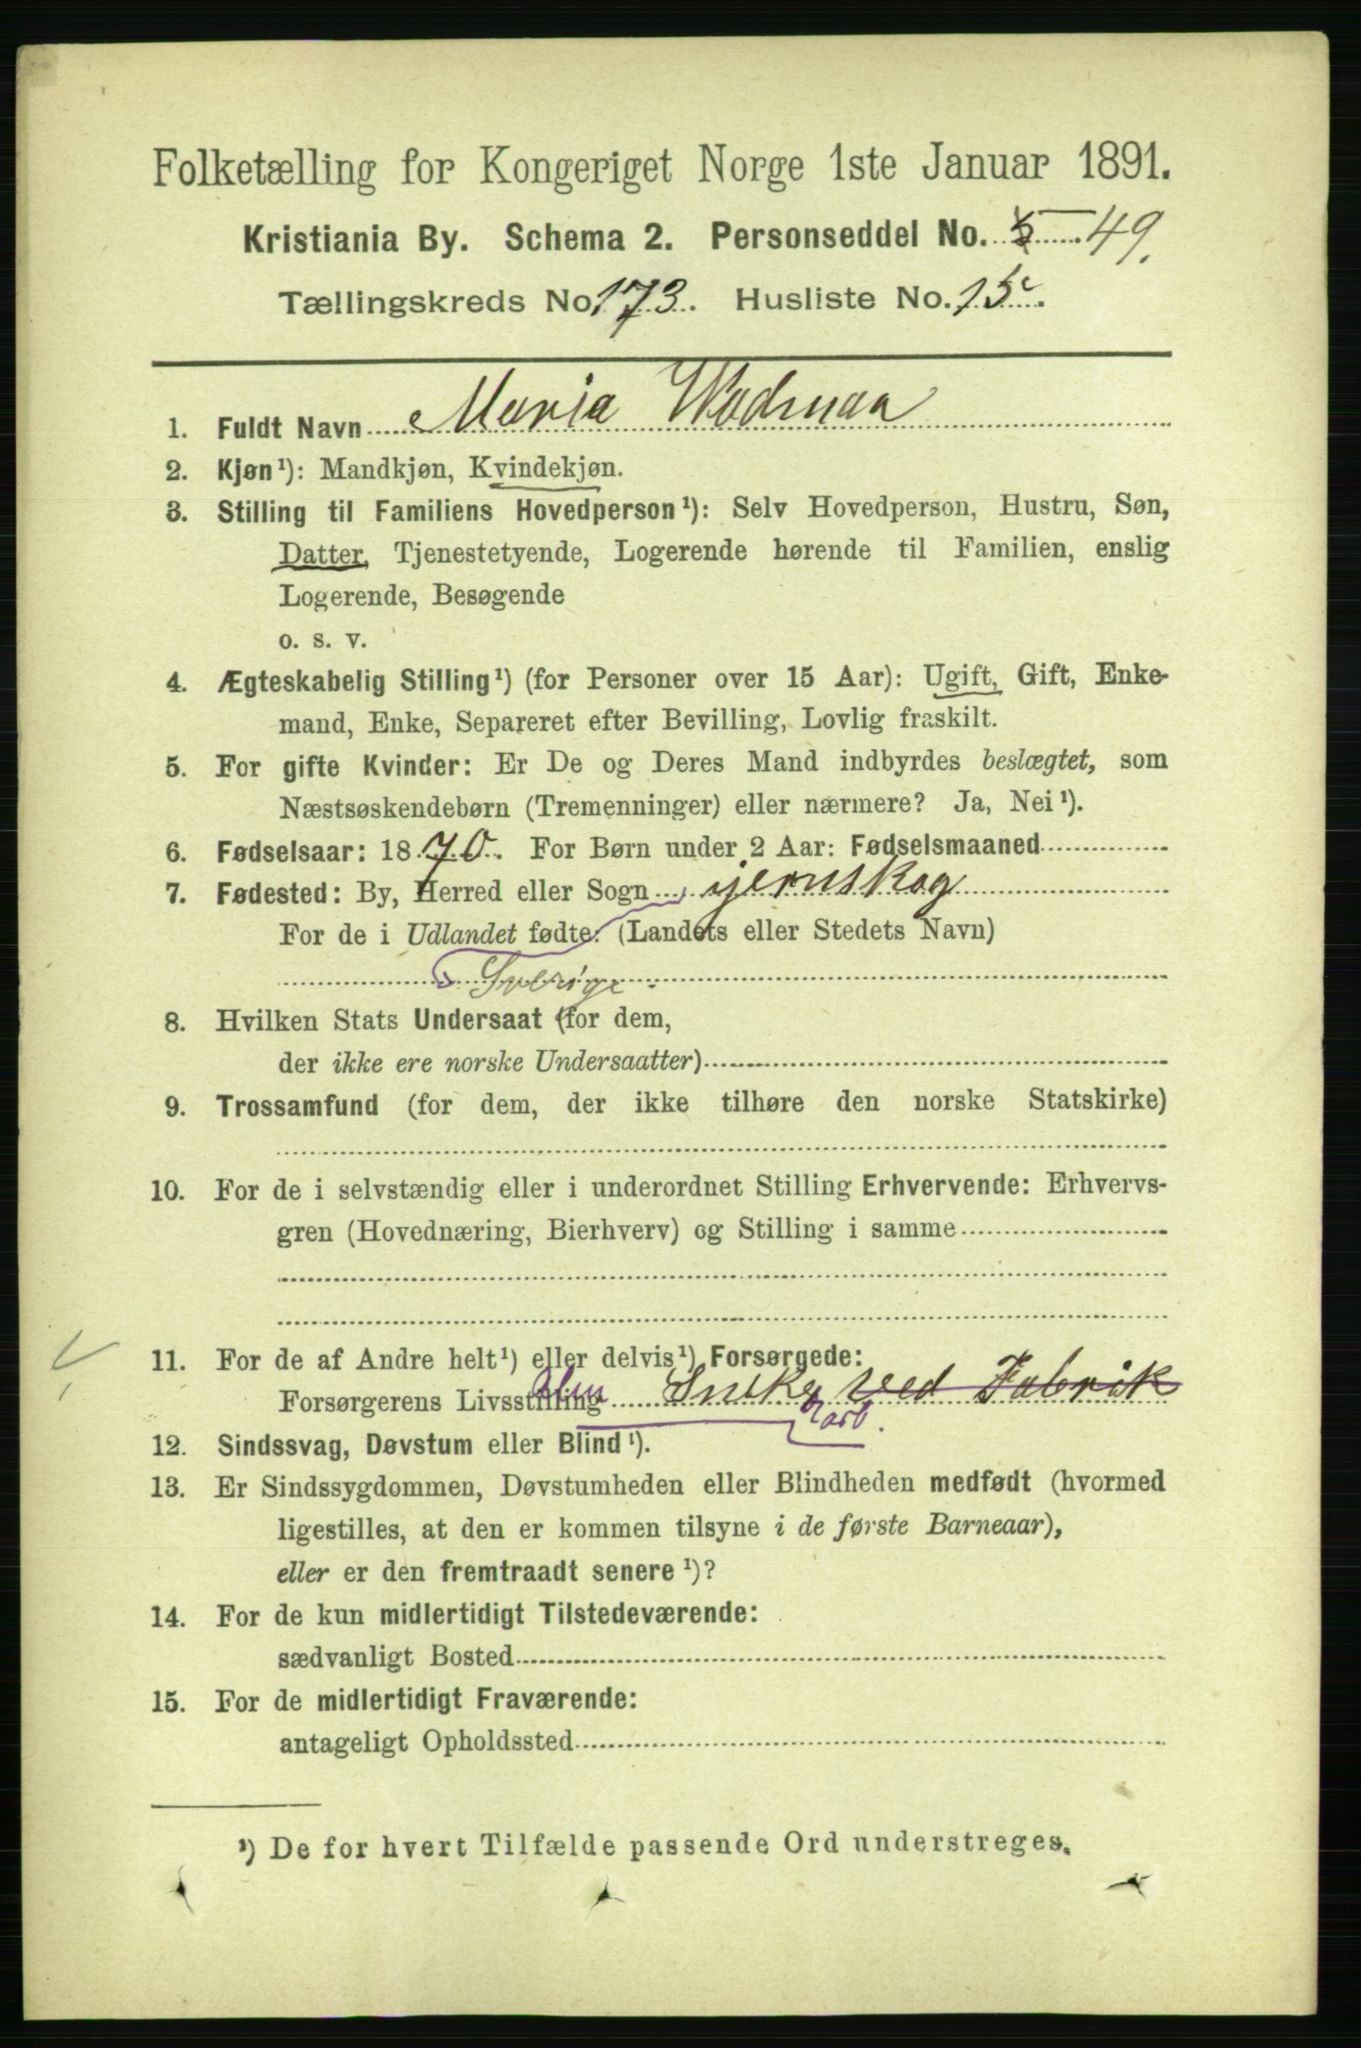 Folketælling for Kongeriget Norge 1ste Januar 1891.
Kristiania By. Schema 2. Personseddel No. 5 49.
Tællingskreds No. 173. Husliste No. 15c.
1. Fuldt Navn Maria Wadman
2. Kjøn¹): Mandkjøn, Kvindekjøn.
3. Stilling til Familiens Hovedperson¹): Selv Hovedperson, Hustru, Søn,
Datter, Tjenestetyende, Logerende hørende til Familien, enslig
Logerende, Besøgende
o. s. v.
4. Ægteskabelig Stilling¹) (for Personer over 15 Aar): Ugift, Gift, Enke-
mand, Enke, Separeret efter Bevilling, Lovlig fraskilt.
5. For gifte Kvinder: Er De og Deres Mand indbyrdes beslægtet, som
Næstsøskendebørn (Tremenninger) eller nærmere? Ja, Nei¹).
6. Fødselsaar: 1870. For Børn under 2 Aar: Fødselsmaaned
7. Fødested: By, Herred eller Sogn jernskog
For de i Udlandet fødte: (Landets eller Stedets Navn)
Sverige
8. Hvilken Stats Undersaat (for dem,
der ikke ere norske Undersaatter)
9. Trossamfund (for dem, der ikke tilhøre den norske Statskirke)
10. For de i selvstændig eller i underordnet Stilling Erhvervende: Erhvervs-
gren (Hovednæring, Bierhverv) og Stilling i samme
11. For de af Andre helt¹) eller delvis¹) Forsørgede:
Forsørgerens Livsstilling Snike ved Fabrik
arb.
12. Sindssvag, Døvstum eller Blind¹).
13. Er Sindssygdommen, Døvstumheden eller Blindheden medfødt (hvormed
ligestilles, at den er kommen tilsyne i de første Barneaar),
eller er den fremtraadt senere¹)?
14. For de kun midlertidigt Tilstedeværende:
sædvanligt Bosted
15. For de midlertidigt Fraværende:
antageligt Opholdssted
¹) De for hvert Tilfælde passende Ord understreges.